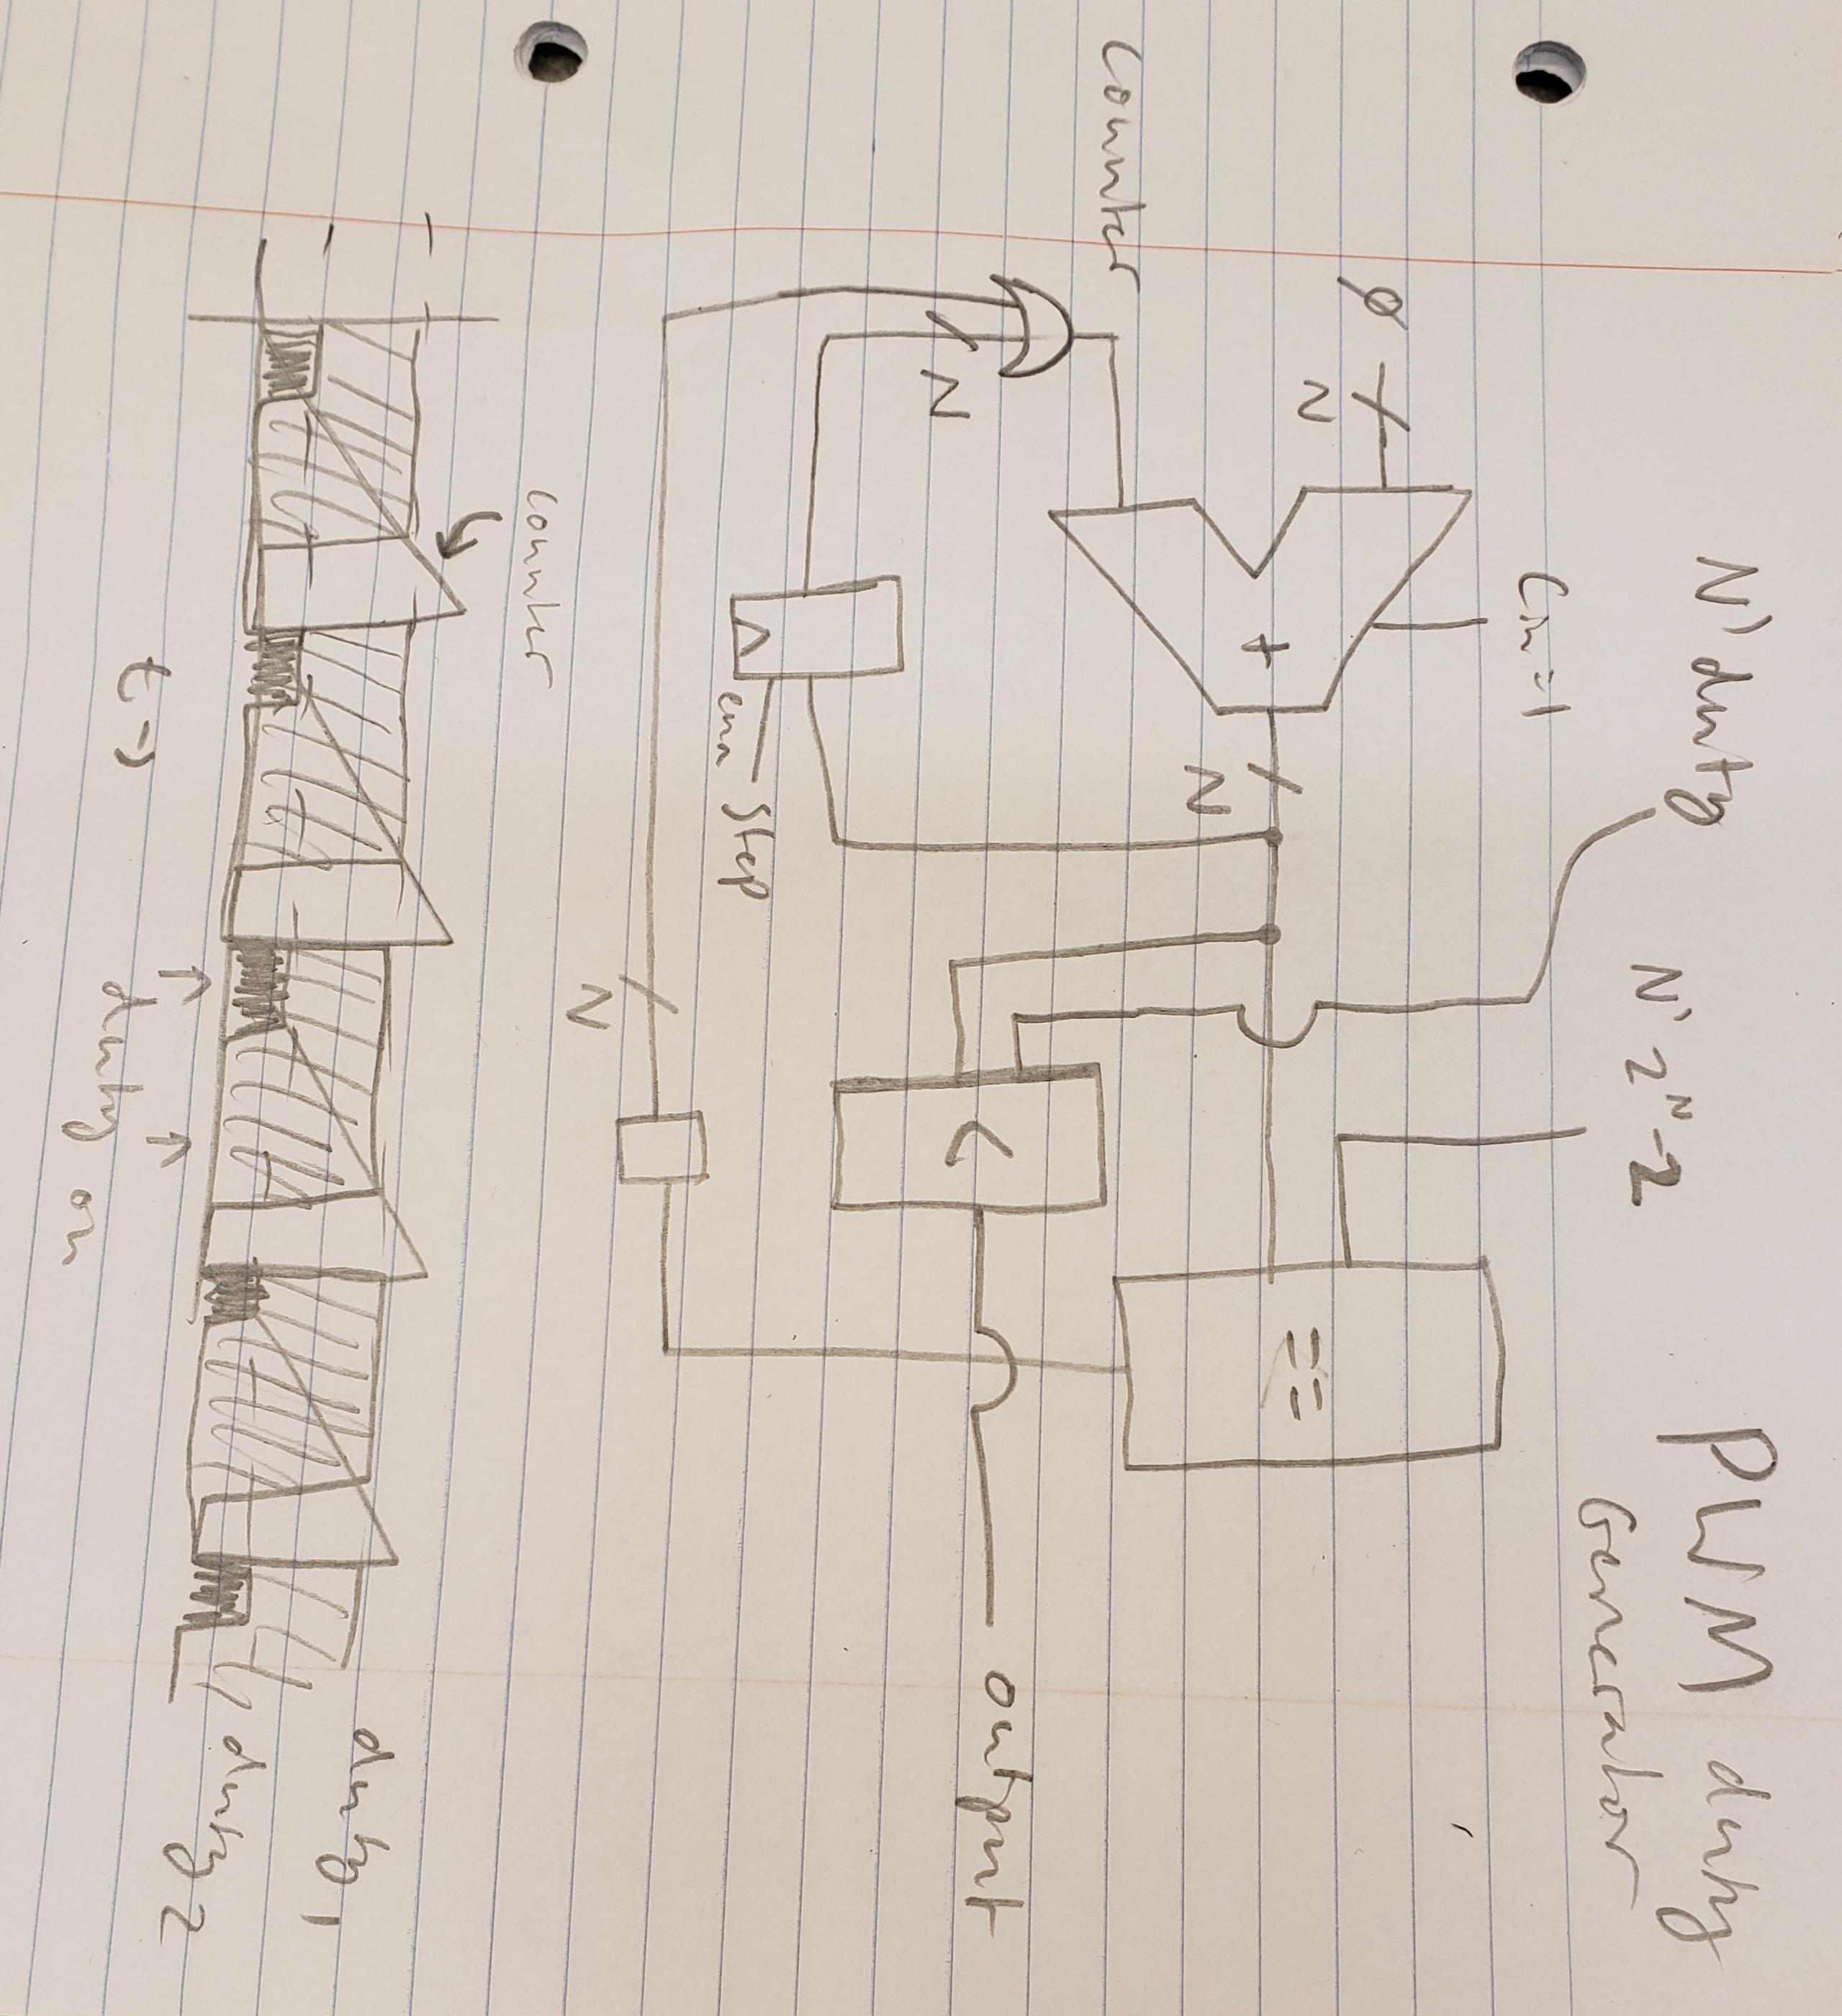 PWM duty
Generator
N' duty
N' 2^N-2
Cin=1
Ø
N
+
N
==
Counter
N
<
output
ena
Step
N
counter
duty 1
duty 2
t→
duty on